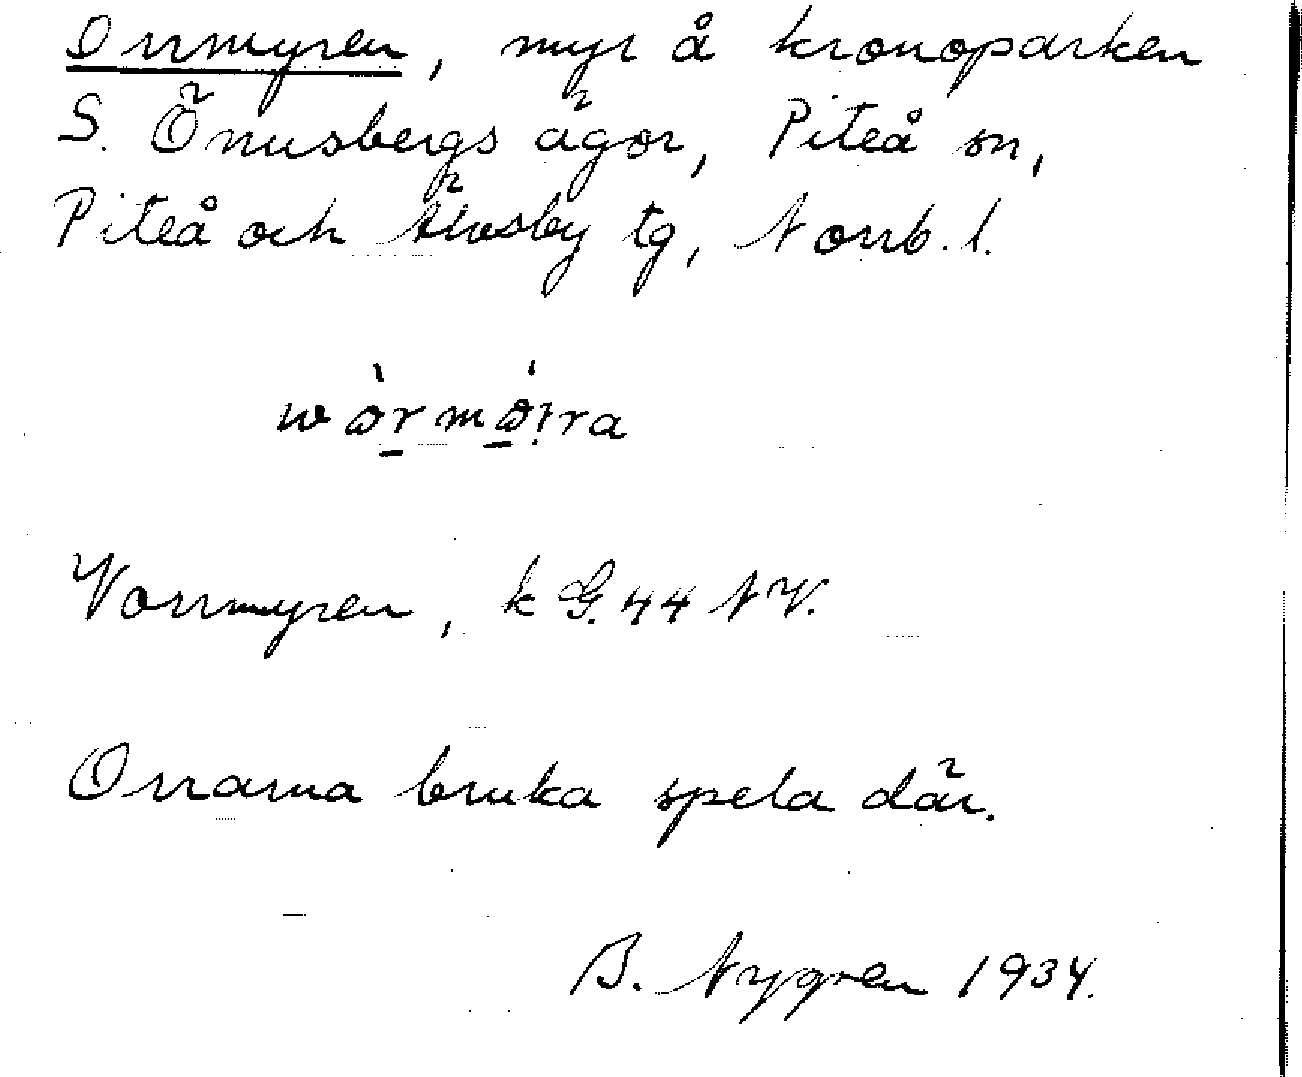 Orrmyren, myr å kronoparken
S. Önusbergs ägor, Piteå sn,
Piteå och Älvsby tg, Norrb. l.
Vorrmyren, k G. 44 NV.
Orrarna bruka spela där.
B. Nygren 1934.